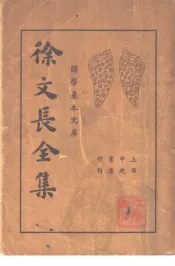 國學基本文庫
徐文長全集
上海
中央
書店
發行